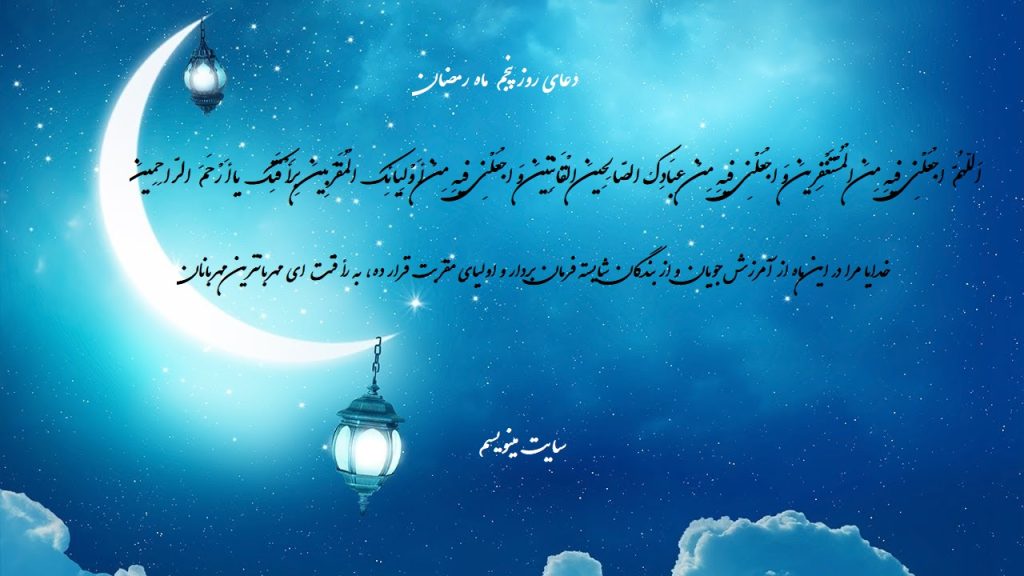 دعای روز پنجم ماه رمضان
اَللّهُمَّ اجْعَلْنی فیهِ مِنَ الْمُسْتَغْفِرینَ وَ اجْعَلْنی فیهِ مِنْ عِبادِکَ الصّالِحینَ الْقانِتینَ وَ اجْعَلْنی فیهِ مِنْ أوْلِیائِکَ الْمُقَرَّبینَ بِرَأفَتِکَ یا أرْحَمَ الرّاحِمینَ
خدایا مرا در این ماه از آمرزش جویان و از بندگان شایسته فرمان بردار و اولیای مقربت قرار ده، به رأفتت ای مهربانترین مهربانان
سایت مینویسم